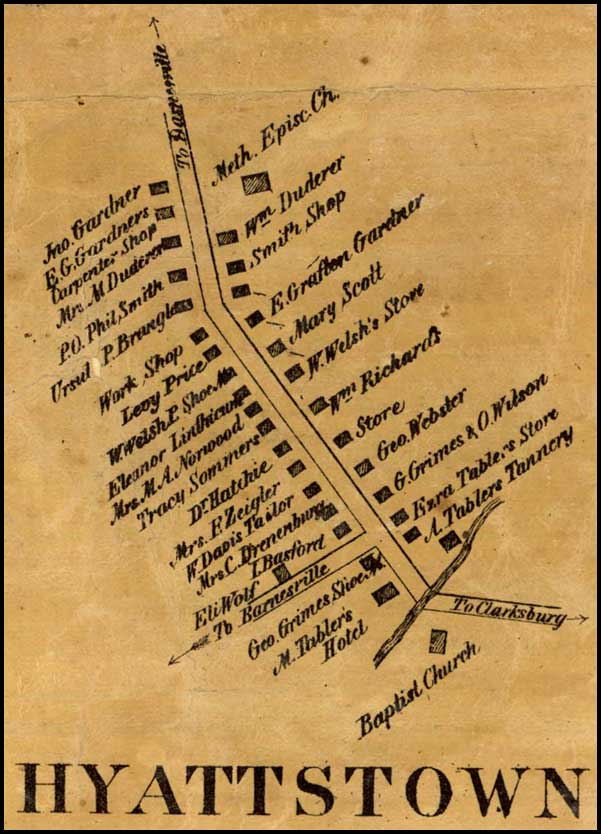 To Barnesville
Meth. Episc. Ch.
Jno. Gardner
E.G. Gardners
Carpenter Shop
Mrs. M Duderer
P.O. Phil Smith
P. Braugle
Work Shop
Levy Price
W. Welsh P. Shoe M.
Eleanor Linthicum
Mrs. M.A. Norwood
Tracy Sommers
Dr. Hatchie
Mrs. F. Zeigler
W. Davis Tailor
Mrs. C. Drenenburg
I. Basford
Eli Wolf
To Barnesville
Geo. Grimes Shoe M.
M. Tabler's
Hotel
Wm Duderer
Smith Shop
E. Grafton Gardner
Mary Scott
W. Welsh's Store
Wm Richards
Store
Geo. Webster
G. Grimes & O. Wilson
Ezra Tabler's Store
A. Tablers Tannery
To Clarksburg
Baptist Church
HYATTSTOWN